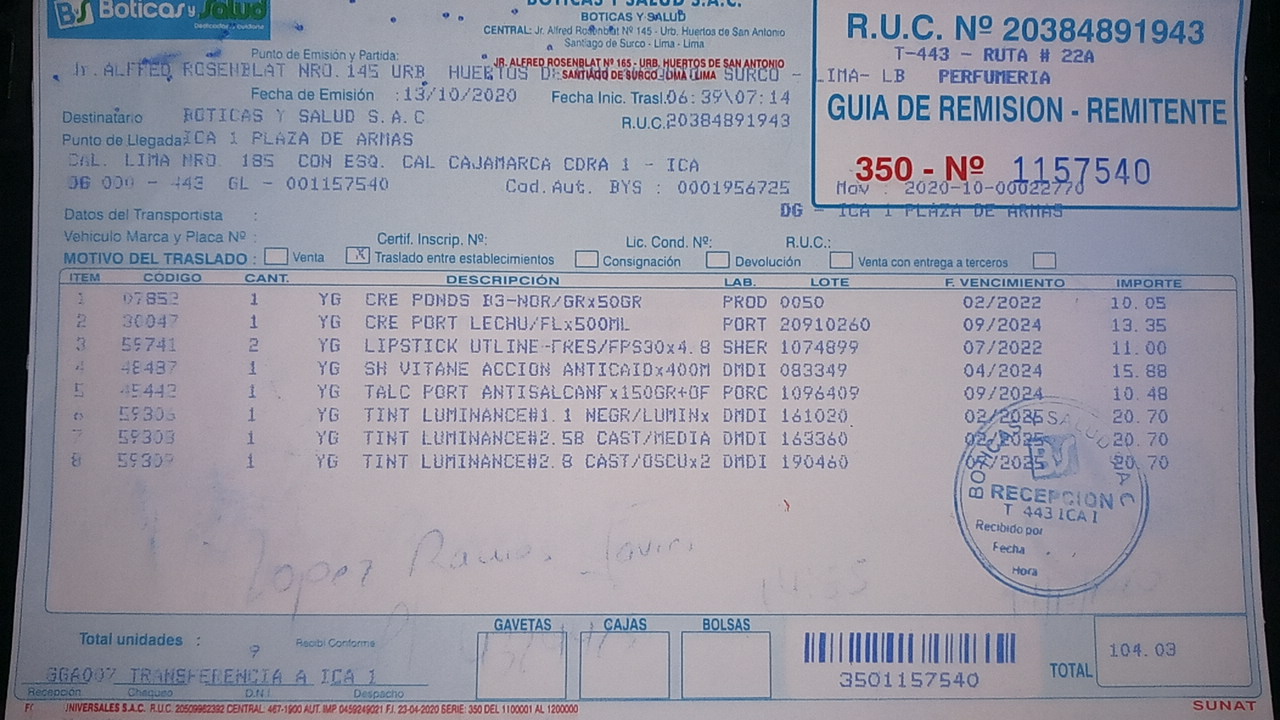 BS Boticas y Salud
Dedicados a cuidarte
BOTICAS Y SALUD S.A.C.
BOTICAS Y SALUD
CENTRAL: Jr. Alfred Rosenblat Nº 145 - Urb. Huertos de San Antonio
Santiago de Surco - Lima - Lima
JR. ALFRED ROSENBLAT Nº 165 - URB. HUERTOS DE SAN ANTONIO
SANTIAGO DE SURCO - LIMA - LIMA
R.U.C. Nº 20384891943
T-443 - RUTA # 22A
PERFUMERIA
GUIA DE REMISION - REMITENTE
350 - Nº 1157540
Mov : 2020-10-00022770
DG - ICA 1 PLAZA DE ARMAS
Punto de Emisión y Partida:
Jr. ALFRED ROSENBLAT NRO. 145 URB HUERTOS DE SURCO - LIMA- LB
Fecha de Emisión :13/10/2020 Fecha Inic. Trasl.06:39\07:14
Destinatario BOTICAS Y SALUD S.A.C R.U.C.20384891943
Punto de Llegada:ICA 1 PLAZA DE ARMAS
CAL. LIMA NRO. 185 CON ESQ. CAL CAJAMARCA CDRA 1 - ICA
DG 000 - 443 GL - 001157540 Cod.Aut. BYS : 0001956725
Datos del Transportista :
Vehiculo Marca y Placa Nº : Certif. Inscrip. Nº: Lic. Cond. Nº: R.U.C.:
MOTIVO DEL TRASLADO : Venta X Traslado entre establecimientos Consignación Devolución Venta con entrega a terceros
ITEM CÓDIGO CANT. DESCRIPCIÓN LAB. LOTE F. VENCIMIENTO IMPORTE
1 07852 1 YG CRE PONDS B3-NGR/GRx50GR PROD 0050 02/2022 10.05
2 30047 1 YG CRE PORT LECHU/FLx500ML PORT 20910260 09/2024 13.35
3 59741 2 YG LIPSTICK UTLINE-TRES/FPS30x4.8 SHER 1074899 07/2022 11.00
4 48487 1 YG SH VITANE ACCION ANTICAIDx400M DMDI 083349 04/2024 15.88
5 45442 1 YG TALC PORT ANTISALCANFx150GR+OF PORC 1096409 09/2024 10.48
6 59306 1 YG TINT LUMINANCE#1.1 NEGR/LUMINx DMDI 161020 02/2025 20.70
7 59308 1 YG TINT LUMINANCE#2.58 CAST/MEDIA DMDI 163360 02/2025 20.70
8 59309 1 YG TINT LUMINANCE#2.8 CAST/OSCUx2 DMDI 190460 /2025 20.70
BOTICAS Y SALUD S A C
BS
RECEPCION
T 443 ICA 1
Recibido por
Fecha
Hora
Lopez Ramos Javier
Total unidades : 9 Recibí Conforme
GAVETAS CAJAS BOLSAS
3501157540
TOTAL 104.03
GGA007 TRANSFERENCIA A ICA 1
Recepción Chequeo D.N.I. Despacho
UNIVERSALES S.A.C. R.U.C. 20509962392 CENTRAL: 467-1900 AUT. IMP 0459249021 F.I. 23-04-2020 SERIE: 350 DEL 1100001 AL 1200000
SUNAT